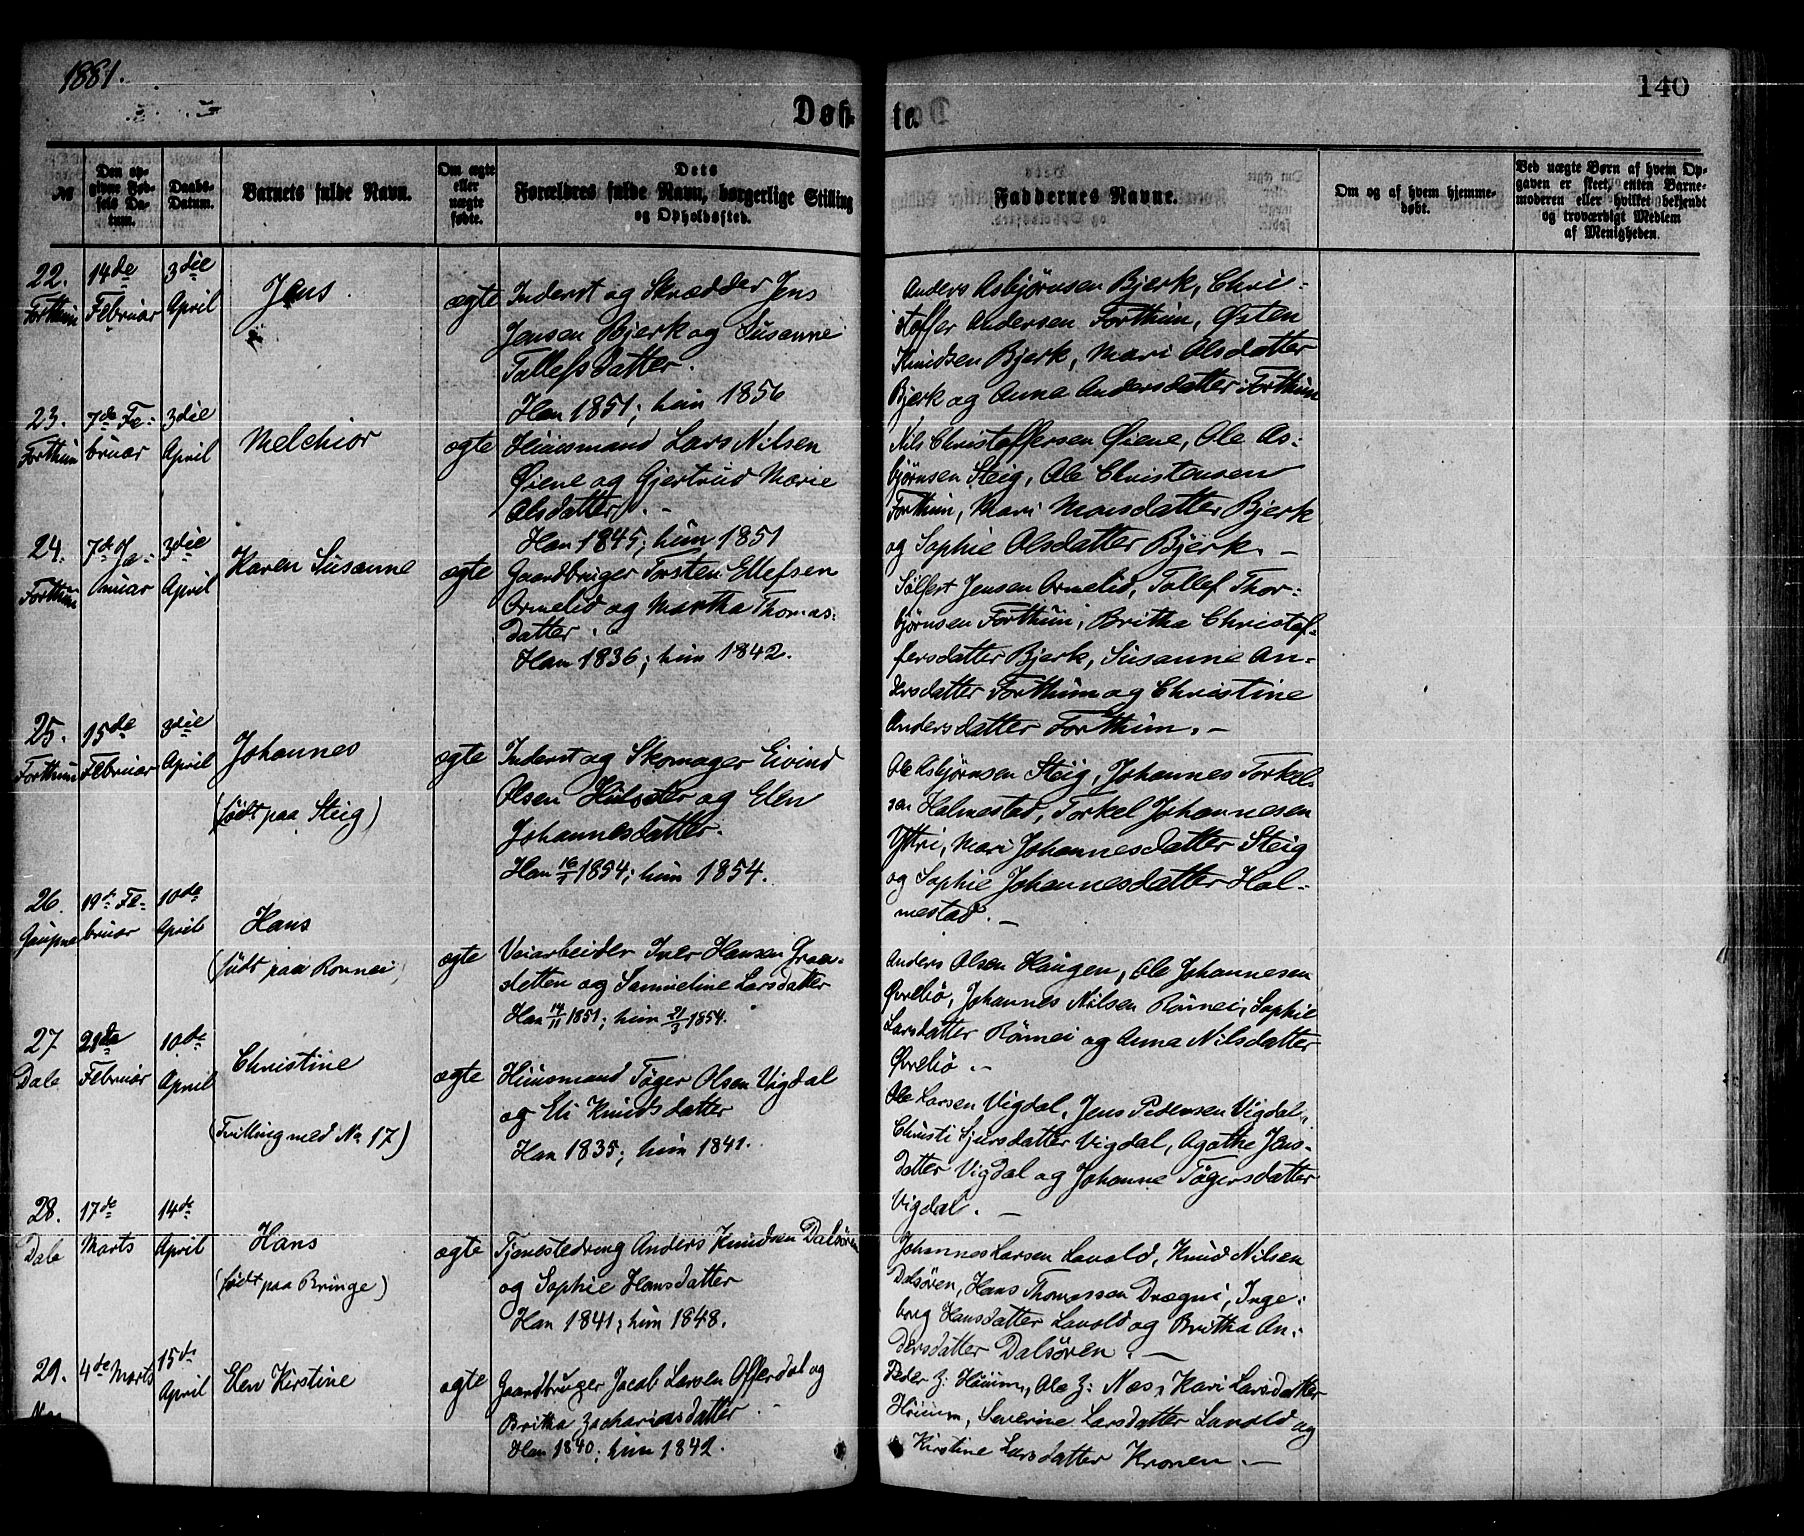 1881.
140
Døbte.
№
Den opgivne Fødsels Datum.
Daabs-Datum.
Barnets fulde Navn.
Om ægte eller uægte født.
Dets Forældres fulde Navn, borgerlige Stilling og Opholdssted.
Faddernes Navne.
Om og af hvem hjemmedøbt.
Ved uægte Børn af hvem Opgaven er skeet, enten Barnemoderen eller hvilket bekjendt og troværdigt Medlem af Menigheden.
22.
Forthun
14de
Februar
3die
April
Jens
ægte
Inderst og Skrædder Jens
Jensen Bjerk og Susanne
Tollefsdatter.
Han 1851; hun 1856
Anders Asbjørnsen Bjerk, Chri-
stoffer Andersen Forthun, Østen
Knudsen Bjerk, Mari Olsdatter
Bjerk og Anna Andersdatter Forthun
23.
Forthun
7de Fe-
bruar
3die
April
Melchior
ægte
Huusmand Lars Nilsen
Øiene og Gjertrud Marie
Olsdatter. -
Han 1845; hun 1851
Nils Christoffersen Øiene, Ole As-
bjørnsen Steig, Ole Christensen
Forthun, Mari Monsdatter Bjerk
og Sophie Olsdatter Bjerk. -
24.
Forthun
7de Ja-
nuar
3die
April
Karen Susanne
ægte
Gaardbruger Torsten Ellefsen
Ormelid og Martha Thomas-
datter.
Han 1836; hun 1842.
Sølfest Jensen Ormelid, Tollef Thor-
bjørnsen Forthun, Britha Christof-
fersdatter Bjerk, Susanne An-
dersdatter Forthun og Christine
Andersdatter Forthun. -
25.
Forthun
15de
Februar
3die
April
Johannes
(født paa Steig)
ægte
Inderst og Skomager Eivind
Olsen Hulsæter og Elen
Johannesdatter.
Han 1854; hun 1854.
Ole Asbjørnsen Steig, Johannes Torkel-
sen Halmestad, Torkel Johannesen
Yttri, Mari Johannesdatter Steig
og Sophie Johannesdatter Hal-
mestad. -
26.
Gaupne
19de Fe-
bruar
10de
April
Hans
(født paa Rønnei)
ægte
Veiarbeider Iver Hansen Graa-
detten og Samueline Larsdatter
Han 14/11 1851; hun 21/3 1854.
Anders Olsen Haugen, Ole Johannesen
Øvrebø, Johannes Nilsen Rønnei, Sophie
Larsdatter Rønnei og Anna Nilsdatter
Øvrebø. -
27
Dale
28de
Februar
10de
April
Christine
(Tvilling med No 17)
ægte
Huusmand Tøger Olsen Vigdal
og Eli Knudsdatter
Han 1835; hun 1841.
Ole Larsen Vigdal, Jens Pedersen Vigdal,
Christi Sjursdatter Vigdal, Agathe Jens-
datter Vigdal og Johanne Tøgersdatter
Vigdal. -
28.
Dale
17de
Marts
14de
April
Hans
(født paa Bringe)
ægte
Tjenestedreng Anders Knudsen Dalsøren
og Sophie Hansdatter
Han 1841; hun 1848.
Johannes Larsen Lavold, Knud Nilsen
Dalsøren, Hans Thomassen Drægni, Inge-
borg Hansdatter Lavold og Britha An-
dersdatter Dalsøren. -
29.
4de Marts
15de
April
Elen Kirstine
ægte
Gaardbruger Jacob Larsen Offerdal og
Britha Zachariasdatter. -
Han 1840; hun 1842.
Peder Z: Huum, Ole Z: Næs, Kari Larsdatter
Huum, Severine Larsdatter Lavold og
Kirstine Larsdatter Kronen. -